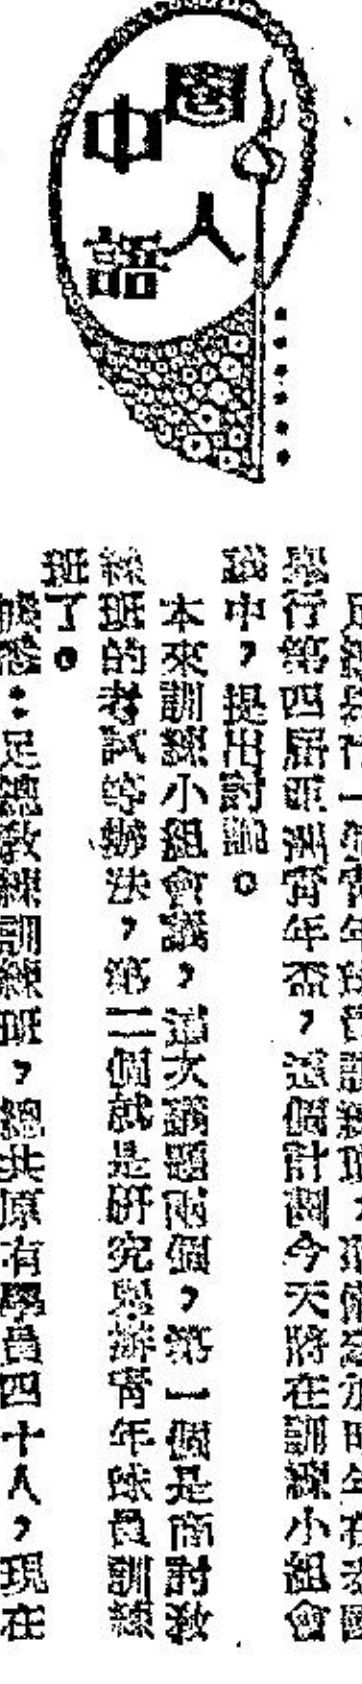 圈中人語
舉行第四屆亞洲青年盃，這個計劃今天將在訓練小組會
議中，提出討論。
本來訓練小組會議，這次議題兩個，第一個是商討教
練班的考試等辦法，第二個就是研究興辦青年球員訓練
班了。
據悉：足總教練訓練班，總共原有學員四十人，現在